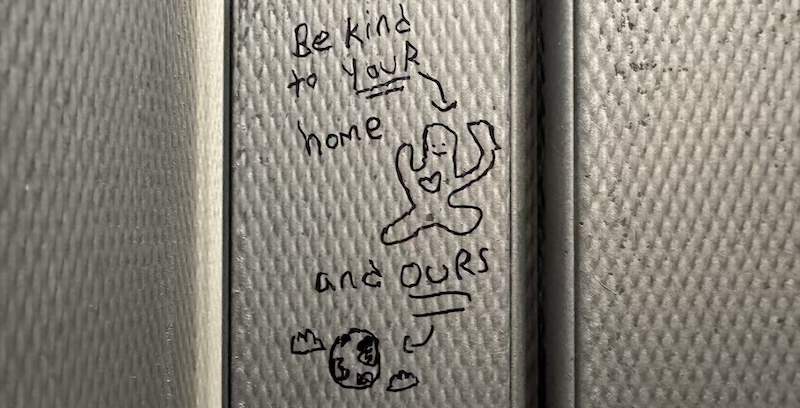 Be kind
to YOUR
home
and OURS